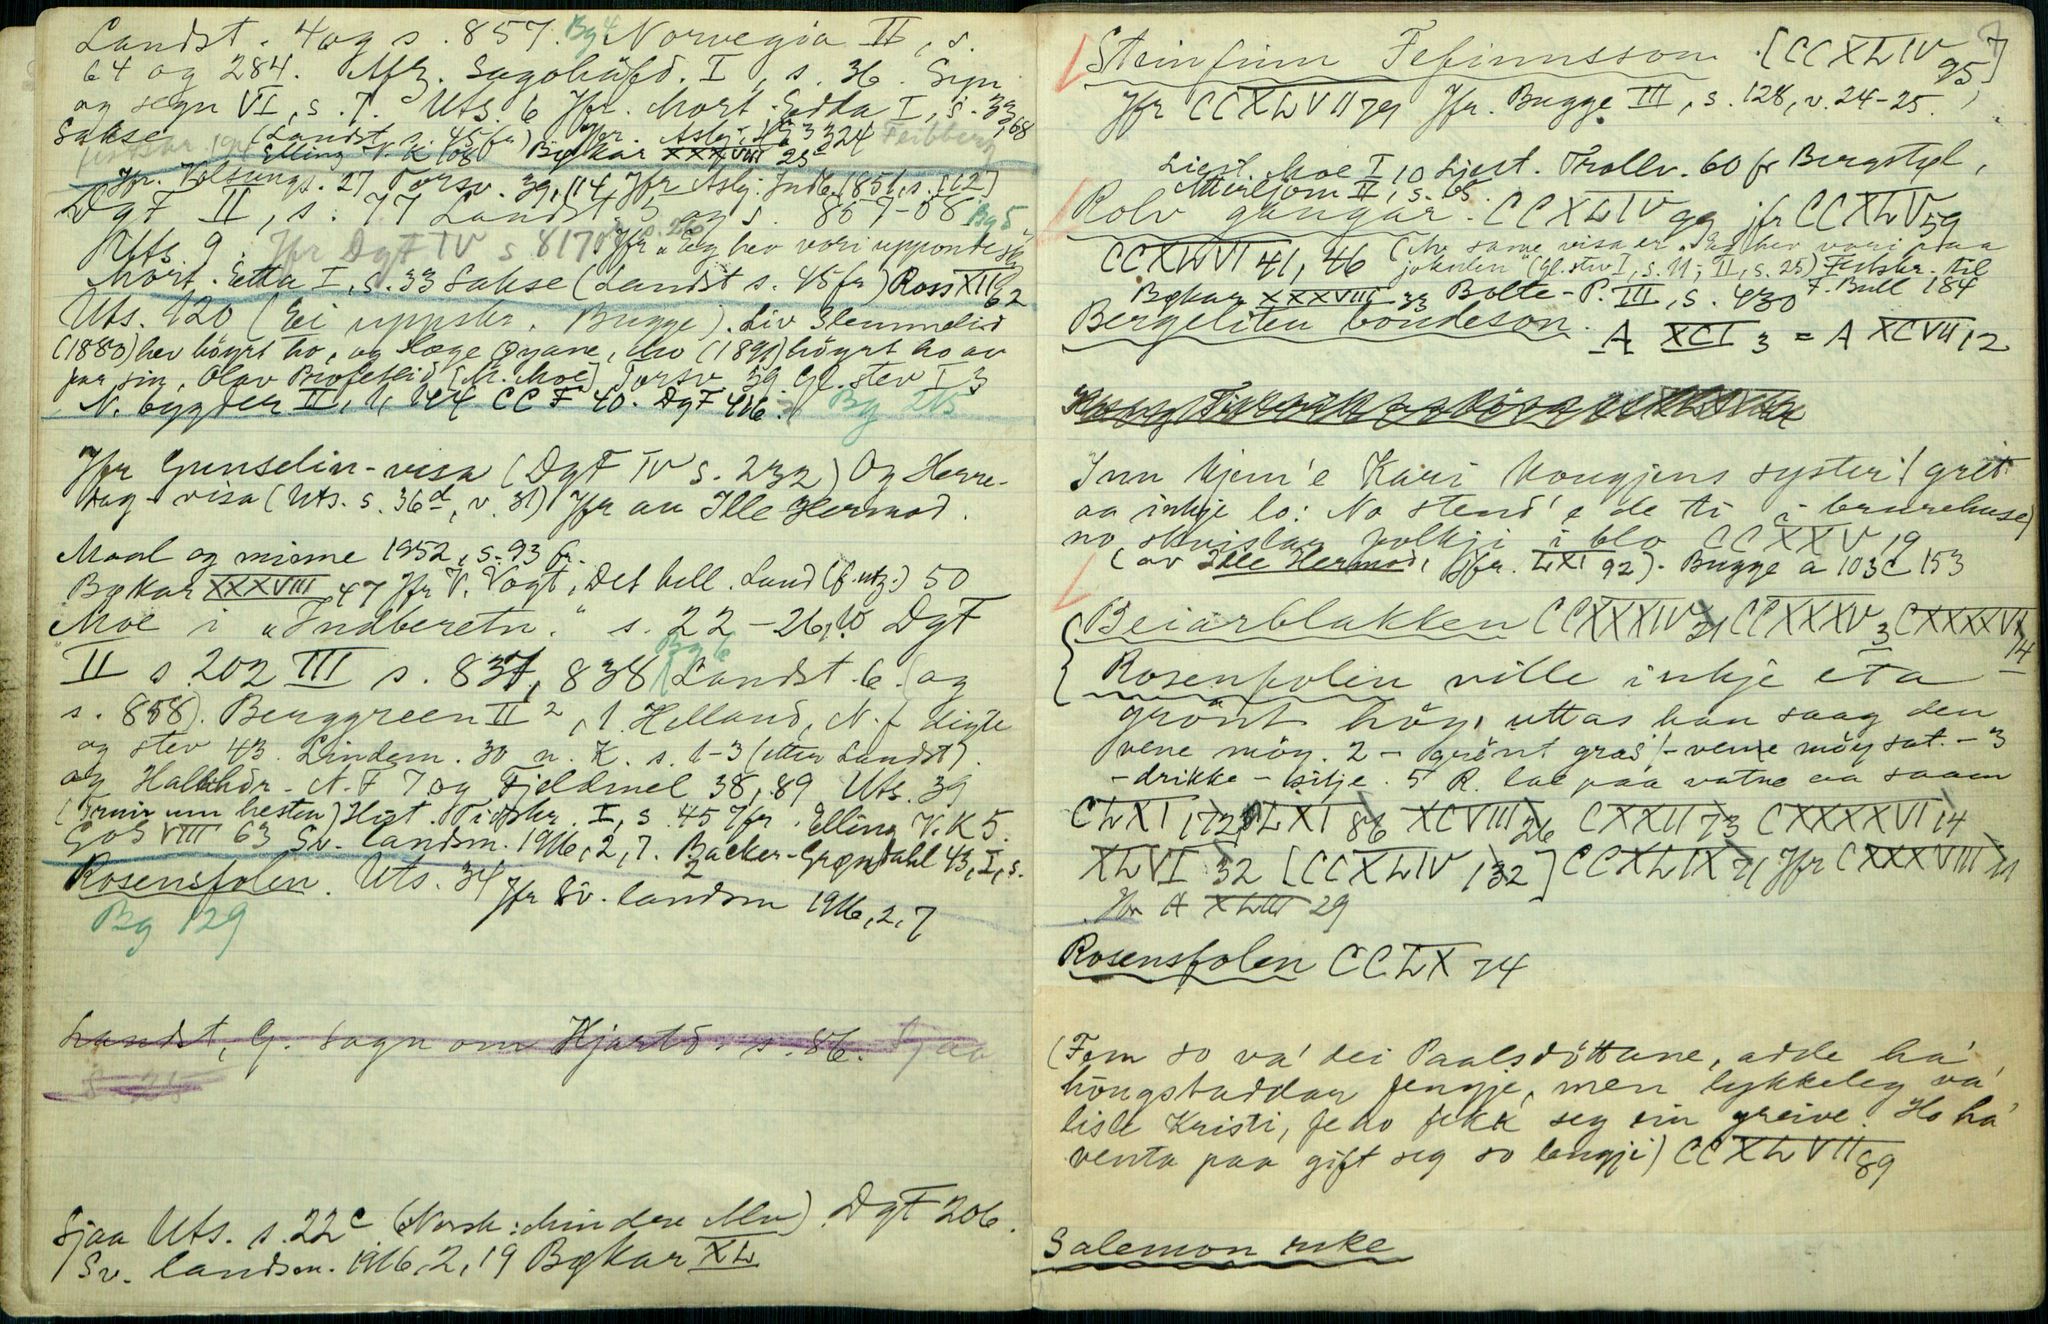 Landst. 4 og s. 857. Bg 4 Norvegia II, s.
64 og 284. Mfz. Sagohåfd. I, s. 36. Syn
og segn VI, s. 7. Uts. 6 Jfr. Mort. Edda I, s. 33, 68
Sakse (Landst. s. 45 fr) Jfr. Asbj. 324
Elling V. K 108 Bøkar XXXVIII 25
Jfr. Volsungs. 27 Torsv. 39, 114, Jfr Asbj. Indb. 1851, s. 112
DgF II, s. 77 Landst. 5 og s. 857-58 Bg 5
Uts. 9. Jfr DgF IV s 817 Jfr "Eg hev vori upponde
Mort. Etta I, s. 33 Sakse (Landst s. 45 fr) Ross XII 62
Uts. 120 (Ei uppskr. Bugge). Liv Slemmelid
(1883) hev høyrt ho, og Aage Øyane, hv (1891) høyrt ho av
far sin, Olav Brofetlid [M. Moe] Torsv. 39 Gl. stev I 3
N. bygder II, 144 CCF 40. DgF 416. Bg 115
Jfr Gunselin-visa (DgF IV s. 232) Og Herre-
dag-visa (Uts. s. 36d, v. 31) Jfr au Ille Hermod.
Maal og minne 1952, s. 93 fr.
Bøkar XXXVIII 47 Jfr V. Vogt, Det hell. Land (f. utg.) 50
Moe i "Indberetn." s. 22-26, 10 DgF
II s. 202 III s. 837, 838 Bg 6 Landst. 6. (og
s. 858). Berggreen II 2, 1. Helland, N. f digte
og stev 43. Lindem. 30 n. K. s. 1-3 (etter Landst).
og Halvhdr. N. F 7 og Fjeldmel 38, 89 Uts. 39
(Truir um hesten) Hist. Tidskr. I, s. 45 Jfr. Elling V. K 5.
GoS VIII 63 Sv. landsm. 1916, 2, 7. Backer-Grøndahl 43, I, s. 2
Rosensfolen. Uts. 34 Jfr Sv. landsm 1916, 2, 7
Bg 129
Landst, G. sagn om Hjartd. s. 86. Sjaa
s 25
Sjaa Uts. s. 22c (Norsk: Mindre Alv) DgF 206.
Sv. landsm. 1916, 2, 19 Bøkar XL
7
Steinfinn Fefinnsson. [CCXLIV 95]
Jfr CCXLVII 79 Jfr. Bugge III, s. 128, v. 24-25.
Liest. Moe I, 10 Liest. Trollv. 60 fr Bergstøl,
Atterljom II, s. 65.
Rolv gangar. CCXLIV 99 jfr CCXLV 59
CCXLVI 41, 46 (the same visa er "Eg hev vori paa
jøkulen" (Gl. stev I, s. 11; II, s. 25) Festskr. til
Bøkar XXXVIII 33 Bolte-P. III, s. 430 F. Bull 184
Bergeliten bondeson. A XCI 3 = A XCVII 12
Inn kjem'e Kari kongjens syster (gret
aa inkje lo: No stend'e de ti i brurehuse)
no skvislar folkji i blo CCXXV 19
(av Ille Hermod, (jfr. LXI 92). Bugge a 103 C 153
Beiarblakken CCXXXIV 21 CCXXXV 3 CXXXXVI 14
Rosenfolin ville inkje eta
grønt høy, uttas han saag den
vene møy. 2 - grønt gras - vene møy sat. - 3
- drikke - silje. 5 R. lae paa vatne aa saam
CLXI 172 LXI 86 XCVIII 26 CXXII 73 CXXXXVI 14
XLVI 32 [CCXLIV 132] CCXLIX 71 Jfr CXXXVIII 11
Jfr A XLIII 29
Rosensfolen CCLX 74
(Fem so va' dei Paalsdöttane, adde ha'
høngstaddar fengje, men lykkeleg va'
lisle Kristi, fe ho fekk seg ein greive. Ho ha'
venta paa gift seg so lengji) CCXLVII 89
Salemon rike